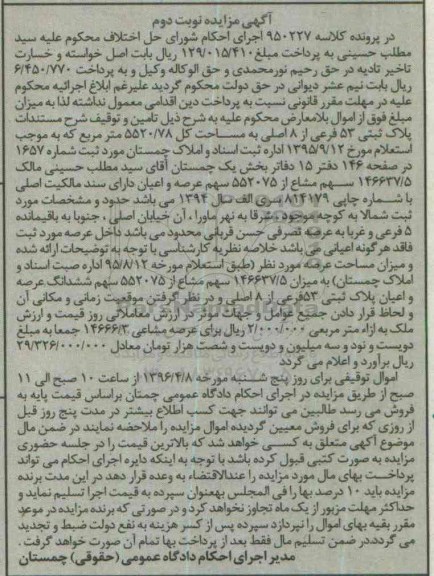 آگهی مزایده نوبت دوم
در پرونده کلاسه ۹۵۰۲۲۷ اجرای احکام شورای حل اختلاف محکوم علیه سید
مطلب حسینی به پرداخت مبلغ ۱۲۹/۰۱۵/۴۱۰ ریال بابت اصل خواسته و خسارت
تاخیر تادیه در حق رحیم نورمحمدی و حق الوکاله وکیل و به پرداخت ۶/۴۵۰/۷۷۰
ریال بابت نیم عشر دیوانی در حق دولت محکوم گردید علیرغم ابلاغ اجرائیه محکوم
علیه در مهلت مقرر قانونی نسبت به پرداخت دین اقدامی معمول نداشته لذا به میزان
مبلغ فوق از اموال بلامعارض محکوم علیه به شرح ذیل تامین و توقیف شرح مستندات
پلاک ثبتی ۵۳ فرعی از ۸ اصلی به مساحت کل ۵۵۲۰/۷۸ متر مربع که به موجب
استعلام مورخ ۱۳۹۵/۹/۱۲ اداره ثبت اسناد و املاک چمستان مورد ثبت شماره ۱۶۵۷
در صفحه ۱۴۶ دفتر ۱۵ دفاتر بخش یک چمستان آقای سید مطلب حسینی مالک
۱۴۶۶۳۷/۵ سهم مشاع از ۵۵۲۰۷۵ سهم عرصه و اعیان دارای سند مالکیت اصلی
با شماره چاپی ۸۱۴۱۷۹ سری الف سال ۱۳۹۴ می باشد حدود و مشخصات مورد
ثبت شمالا به کوچه موجود، شرقا به نهر ماورا، آن خیابان اصلی، جنوبا به باقیمانده
۵ فرعی و غربا به عرصه تصرفی حسن قربانی محدود می باشد داخل عرصه مورد ثبت
فاقد هرگونه اعیانی می باشد خلاصه نظریه کارشناسی با توجه به توضیحات ارائه شده
و میزان مساحت عرصه مورد نظر (طبق استعلام مورخه ۹۵/۸/۱۲ اداره صبت اسناد و
املاک چمستان) به میزان ۱۴۶۶۳۷/۵ سهم مشاع از ۵۵۲۰۷۵ سهم ششدانگ عرصه
و اعیان پلاک ثبتی ۵۳فرعی از ۸ اصلی و در نظر گرفتن موقعیت زمانی و مکانی آن
و لحاظ قرار دادن جمیع عوامل و جهات موثر در ارزش معاملاتی روز قیمت و ارزش
ملک به ازاء متر مربعی ۲/۰۰۰/۰۰۰ ریال برای عرصه مشاعی ۱۴۶۶۶/۳ جمعا به مبلغ
دویست و نود و سه میلیون و دویست و شصت هزار تومان معادل ۲۹/۳۲۶/۰۰۰/۰۰۰
ریال برآورد و اعلام می گردد
اموال توقیفی برای روز پنج شنبه مورخه ۱۳۹۶/۴/۸ از ساعت ۱۰ صبح الی ۱۱
صبح از طریق مزایده در اجرای احکام دادگاه عمومی چمتان براساس قیمت پایه به
فروش می رسد طالبین می توانند جهت کسب اطلاع بیشتر در مدت پنج روز قبل
از روزی که برای فروش معیین گردیده اموال مزایده را ملاحضه نمایند در ضمن مال
موضوع آگهی متعلق به کسی خواهد شد که بالاترین قیمت را در جلسه حضوری
مزایده به صورت کتبی قبول کرده باشد با توجه به اینکه دایره اجرای احکام می تواند
پرداخت بهای مال مورد مزایده را عندالاقتضاء به وعده قرار دهد در این مدت برنده
مزایده باید ۱۰ درصد بها را فی المجلس بهعنوان سپرده به قیمت اجرا تسلیم نماید و
حداکثر مهلت مزبور از یک ماه تجاوز نخواهد کرد و در صورتی که برنده مزایده در موعد
مقرر بقیه بهای اموال را نپردازد سپرده پس از کسر هزینه به نفع دولت ضبط و تجدید
می گردد.در ضمن تسلیم مال فقط بعد از پرداخت بها تمام آن صورت خواهد گرفت.
مدیر اجرای احکام دادگاه عمومی (حقوقی) چمستان